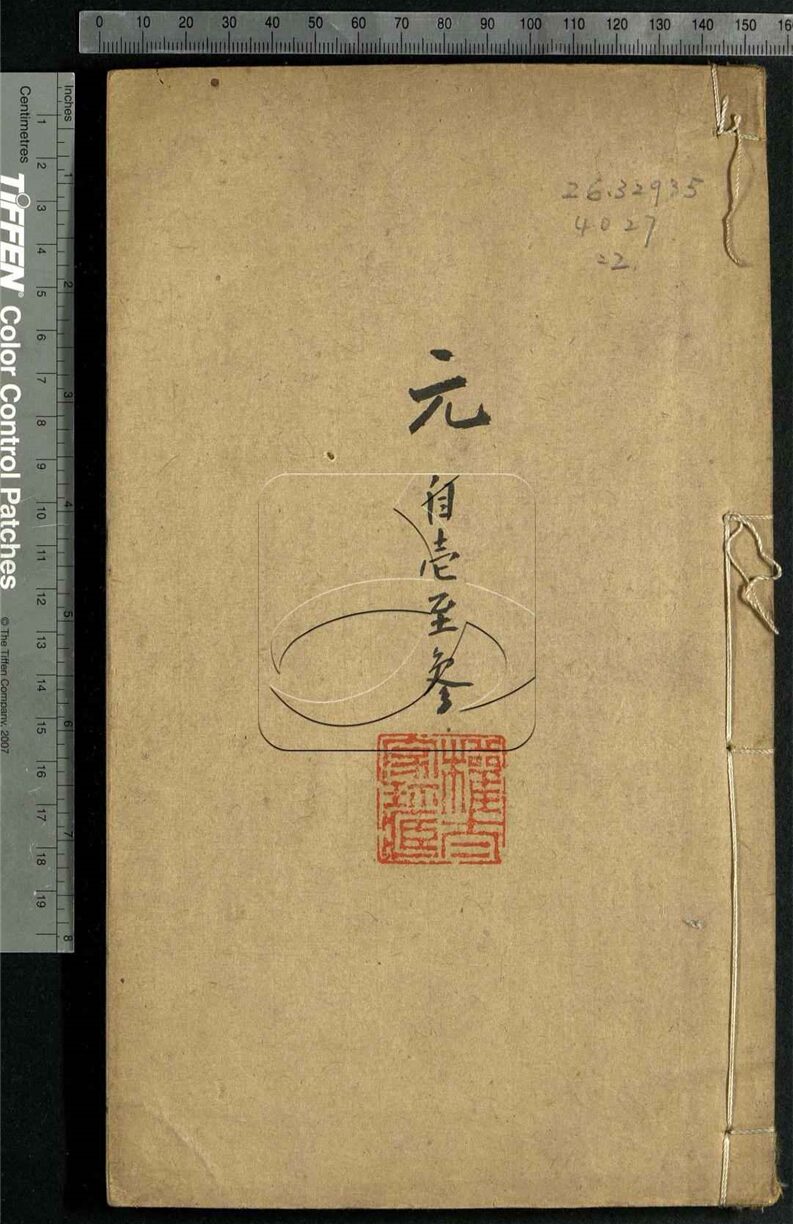 0 10 20 30 40 50 60 70 80 90 100 110 120 130 140 150 16
Inches
Centimetres
1 2 3 4 5 6 7 8
1 2 3 4 5 6 7 8 9 10 11 12 13 14 15 16 17 18 19
TIFFEN® Color Control Patches
© The Tiffen Company, 2007
26.32935
4027
22.
元
自壹至叄